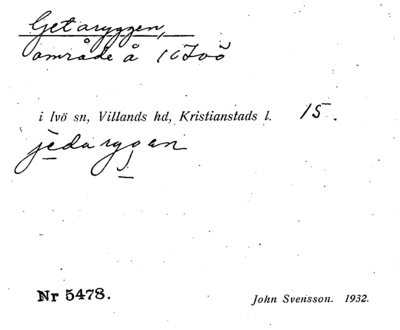 Getaryggen,
område å Ivö
i Ivö sn, Villands hd, Kristianstads l. 15.
jedaryggen
Nr 5478.
John Svensson. 1932.